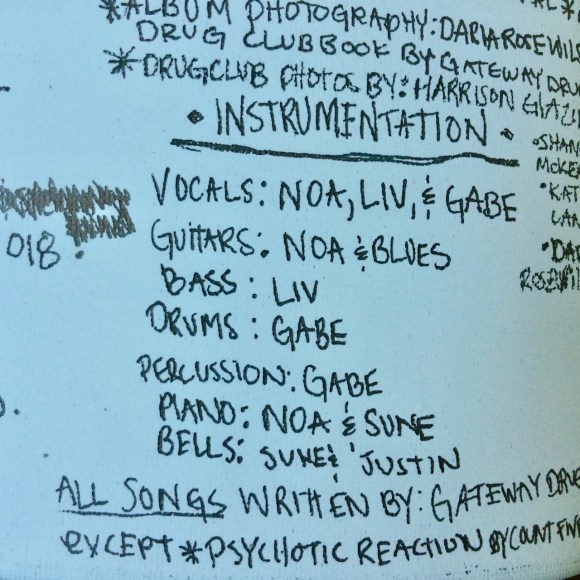 *ALBUM PHOTOGRAPHY: DARIA ROSE
DRUG CLUB BOOK BY GATEWAY DRU
*DRUGCLUB PHOTOS BY: HARRISON
• INSTRUMENTATION •
•SHAN
MCKE
VOCALS: NOA, LIV, & GABE
•KAT
LAN
018.
GUITARS: NOA & BLUES
•DA
BASS: LIV
DRUMS: GABE
PERCUSSION: GABE
PIANO: NOA & SUNE
BELLS: SUNE & JUSTIN
ALL SONGS WRITTEN BY: GATEWAY DRUG
EXCEPT *PSYCHOTIC REACTION BY COUNT FIVE